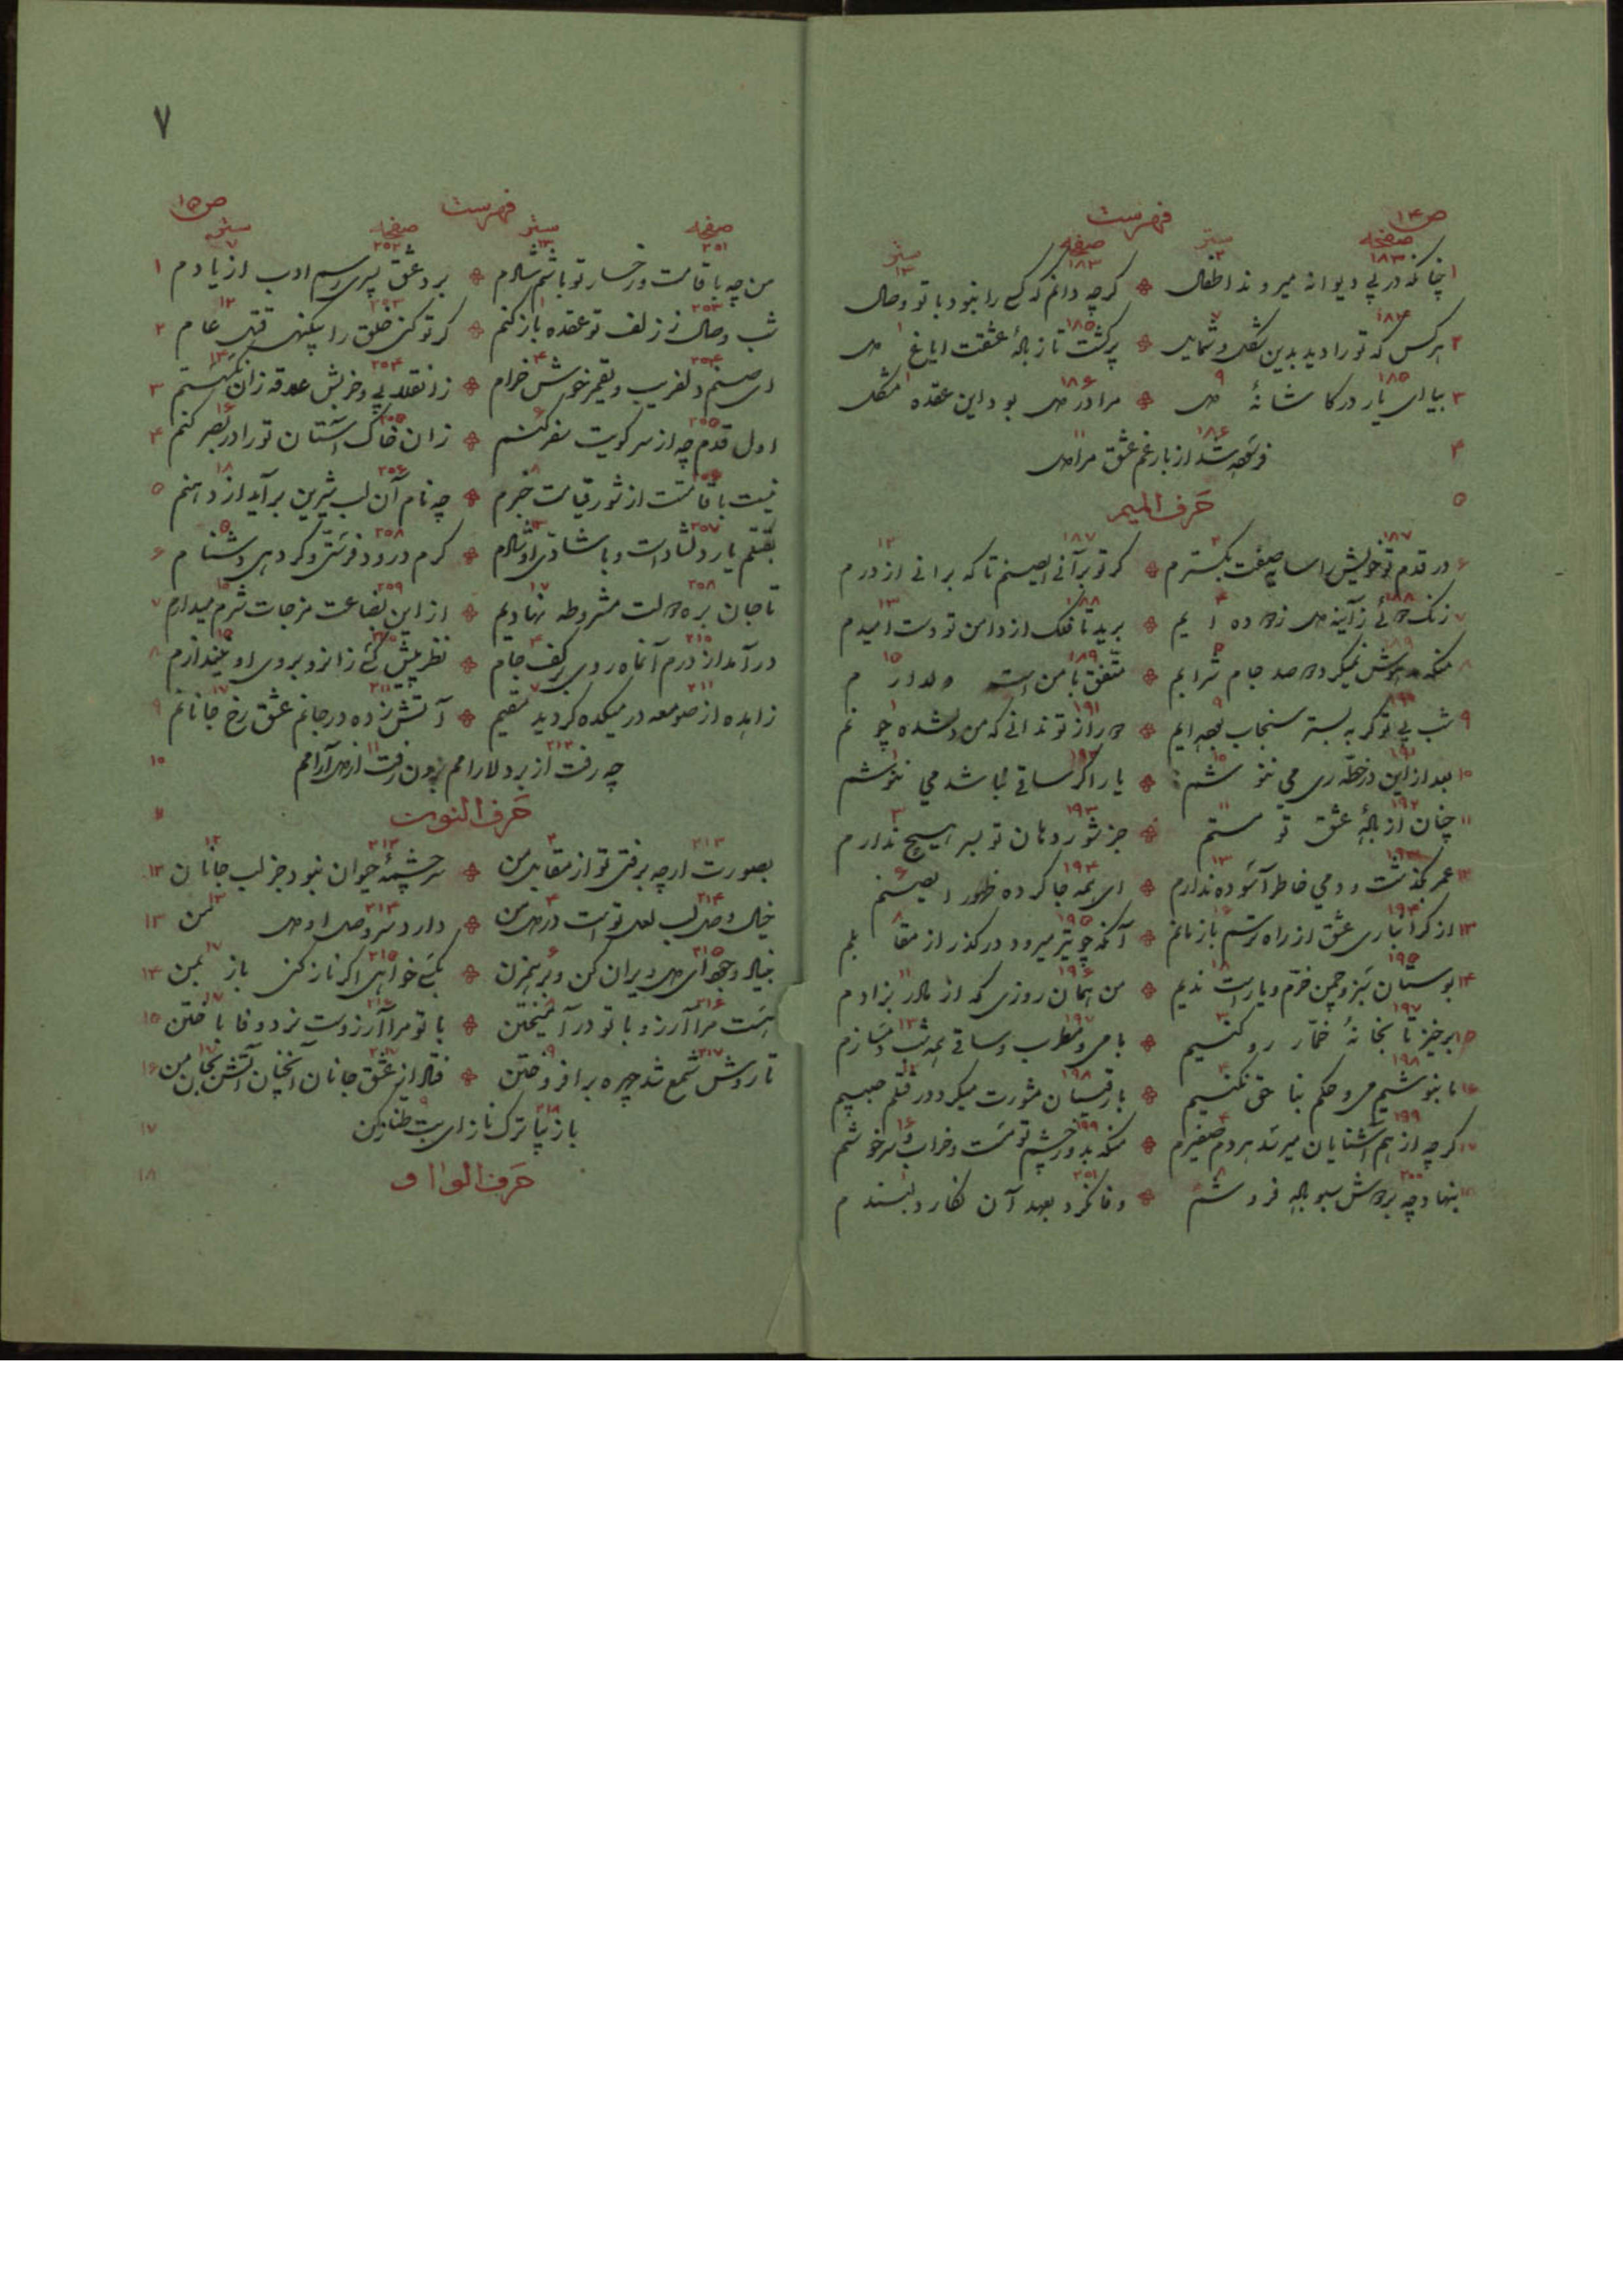 ص ۱۴
فهرست
صفحه سطر صفحه سطر
۱ چنانکه در پی دیوانه میروند اطفال ۱۸۳ ۲ گرچه دانم که کسی را نبود با تو وصال ۱۸۳ ۱۳
۲ هرکس که تو را دید بدین شکل و شمایل ۱۸۴ ۷ پر گشت تا ز بادهٔ عشقت ایاغ دل ۱۸۵ ۱
۳ بیا ای یار در کاشانهٔ دل ۱۸۵ ۹ مرا در دل بود این عقده مشکل ۱۸۶ ۱
۴ فرسوده شد از بار غم عشق مرا دل ۱۸۶ ۱۱
۵ حرف المیم
۶ در قدم تو خویش را سایه صفت بگسترم ۱۸۷ ۲ گر تو برآنی ای صنم تا که برانی از درم ۱۸۷ ۱۲
۷ زنگ ز آینه دل زدوده ایم ۱۸۸ ۴ برید تا فلک از دامن تو دست امیدم ۱۸۸ ۱۳
۸ منکه مدهوش نمیگردم صد جام شرابم ۱۸۹ متفق با من است دلدارم ۱۸۹ ۱۵
۹ شب بی تو گر به بستر سنجاب ایم ۹ راز تو ندانی که من دلشده چونم ۱۹۱ ۱
۱۰ بعد از این در خطهٔ ری می ننوشم ۱۹۱ ۱۰ یار اگر ساقی نباشد می ننوشم ۱۹۲ ۱
۱۱ چنان از بادهٔ عشق تو مستم ۱۹۲ ۱۱ جز شور دهان تو بسر هیچ ندارم ۱۹۳ ۳
۱۲ عمر بگذشت و دمی خاطر آسوده ندارم ۱۹۳ ۱۳ ای بهمه جا کرده ظهور ای صنم ۱۹۴ ۶
۱۳ از گرانباری عشق از راه ترسم بازمانم ۱۹۴ ۱۶ آنکه چو تیر میرود در گذر از مقابلم ۱۹۵ ۸
۱۴ بوستان سبز و چمن خرم و یار است ندیم ۱۹۵ ۱۸ من همان روزی که از مادر بزادم ۱۹۶ ۱۱
۱۵ برخیز تا بخانهٔ خمار رو کنیم ۱۹۷ ۳ با می و مطرب و ساقی همه شب دمسازم ۱۹۷ ۱۳
۱۶ ما بنوشیم می و حکم بنا حق نکنیم ۱۹۸ ۴ با رقیبان مشورت میکرد در قتلم حبیبم ۱۹۸ ۱۴
۱۷ گرچه از هم آشنایان میرسد هر دم صفیرم ۱۹۹ ۴ منکه بدور چشم تو مست و خراب و سرخوشم ۱۹۹ ۱۶
۱۸ بنهاد چه بر دوش سبو باده فروشم ۲۰۰ ۸ وفا نکرد بعهد آن نگار دلبندم ۲۰۱ ۱
۷
ص ۱۵
فهرست
صفحه سطر صفحه سطر
۱ من چه با قامت و رخسار تو باشم شادم ۲۰۱ ۱۳ برد عشق پسری رسم ادب از یادم ۲۰۲ ۷
۲ شب وصال ز زلف تو عقده باز کنم ۲۰۳ ۱ گر تو کنی خلق را بیگنهی قتل عام ۲۰۳ ۱۲
۳ ای صنم دلفریب وی قمر خوش خرام ۲۰۴ ۴ علاقه زان نگسستم ۲۰۴ ۱۴
۴ اول قدم چه از سر کویت سفر کنم ۲۰۵ ۶ زان خاک آستان تو را در بصر کنم ۲۰۵ ۱۶
۵ نیست با قامتت از شور قیامت خبرم ۸ چه نام آن لب شیرین برآید از دهنم ۲۰۶ ۱۸
۶ بقتلم یار دلشاد است و با شادی او شادم ۲۰۷ ۱۳ کرم درود فرستی و گر دهی دشنام ۲۰۸ ۵
۷ تا جان بره مشروطه نهادیم ۲۰۸ ۱۷ از این بضاعت مزجات شرم میدارم ۲۰۹ ۱۵
۸ درآمد از درم آنماه روی بر کف جام ۲۱۰ ۴ نظر پیش کسی زانرو بروی او نیندازم ۲۱۰ ۱۵
۹ زاهده از صومعه در میکده گردید مقیم ۲۱۱ ۷ آتش زده در جانم عشق رخ جانانم ۲۱۱ ۱۷
۱۰ چه رفت از بر دلارامم برون رفت از دل آرامم ۲۱۲ ۱۱
۱۱ حرف النون
۱۲ بصورت ارچه برفتی تو از مقابل من ۲۱۳ ۲ سرچشمهٔ حیوان نبود جز لب جانان ۲۱۳ ۱۲
۱۳ خیال وصل لب لعل توست در دل من ۲۱۴ ۳ دارد سر وصل او دل من ۲۱۴ ۱۳
۱۴ ای دل ویران کن و برهم زن ۲۱۵ ۶ بکسی خواهی اگر ناز کنی باز بمن ۲۱۵ ۱۷
۱۵ هست مرا آرزو با تو درآمیختن ۲۱۶ با تو مرا آرزوست نرد وفا باختن ۲۱۶ ۱۷
۱۶ تا روش شمع شد چهره برافروختن ۲۱۷ ۹ فتاد از عشق جانان آنچنان آتش بجان من ۲۱۷ ۱۷
۱۷ باز بیا ترک ناز ای بت طناز کن ۲۱۸ ۹
۱۸ حرف الواو